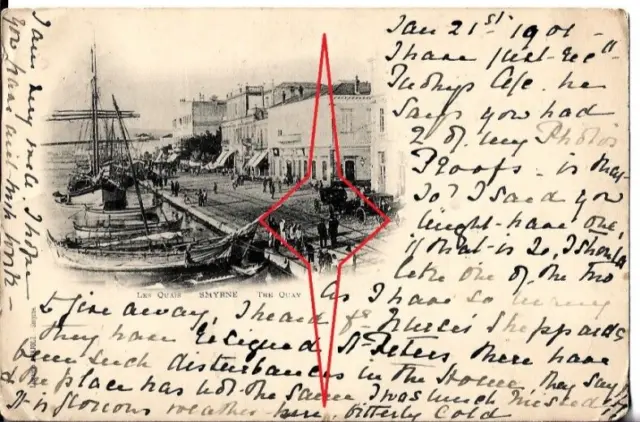 Jan 21st 1901 -
I have just rec'd
Judy's Ap. he
says you had
2 of my Photos
Proofs - is that
so? I said you
might have one,
if that is so, I should
like one of the two
LES QUAIS SMYRNE THE QUAY
As I have so many
to give away, I heard fr. Nurses Sheppard
they have resigned St Peters, there have
been such disturbances in the Home, they say
the place has not the same I was much missed
It is glorious weather here, bitterly cold
I am very well. I hope
you are and Mrs